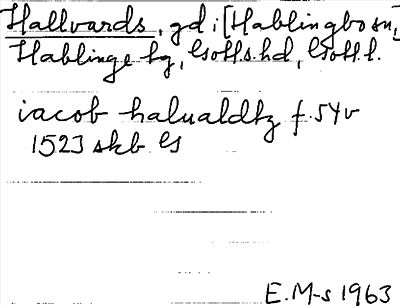 Hallvards, gd i [Hablingbo sn,]
Hablinge tg, Gotl.s hd, Gotl. l.
iacob halualdtz f. 54v
1523 skb GS
E. M-s 1963